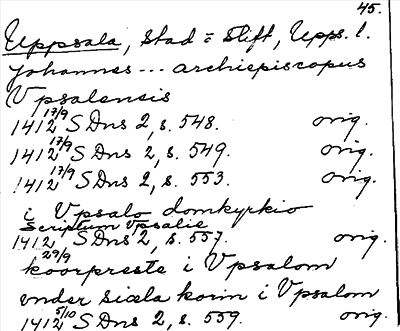 45.
Uppsala, Stad o Stift, Upps. l.
Johannes --- archiepiscopus
Vpsalensis
1412 17/9 SDns 2, s. 548. orig.
1412 17/9 SDns 2, s. 549. orig.
1412 17/9 SDns 2, s. 553. orig.
i Vpsalo domkyrkio
Scriptum Vpsalie
1412 29/9 SDns 2, s. 557. orig.
koorpreste i Vpsalom
vnder siæla korin i Vpsalom
1412 5/10 SDns 2, s. 559. orig.